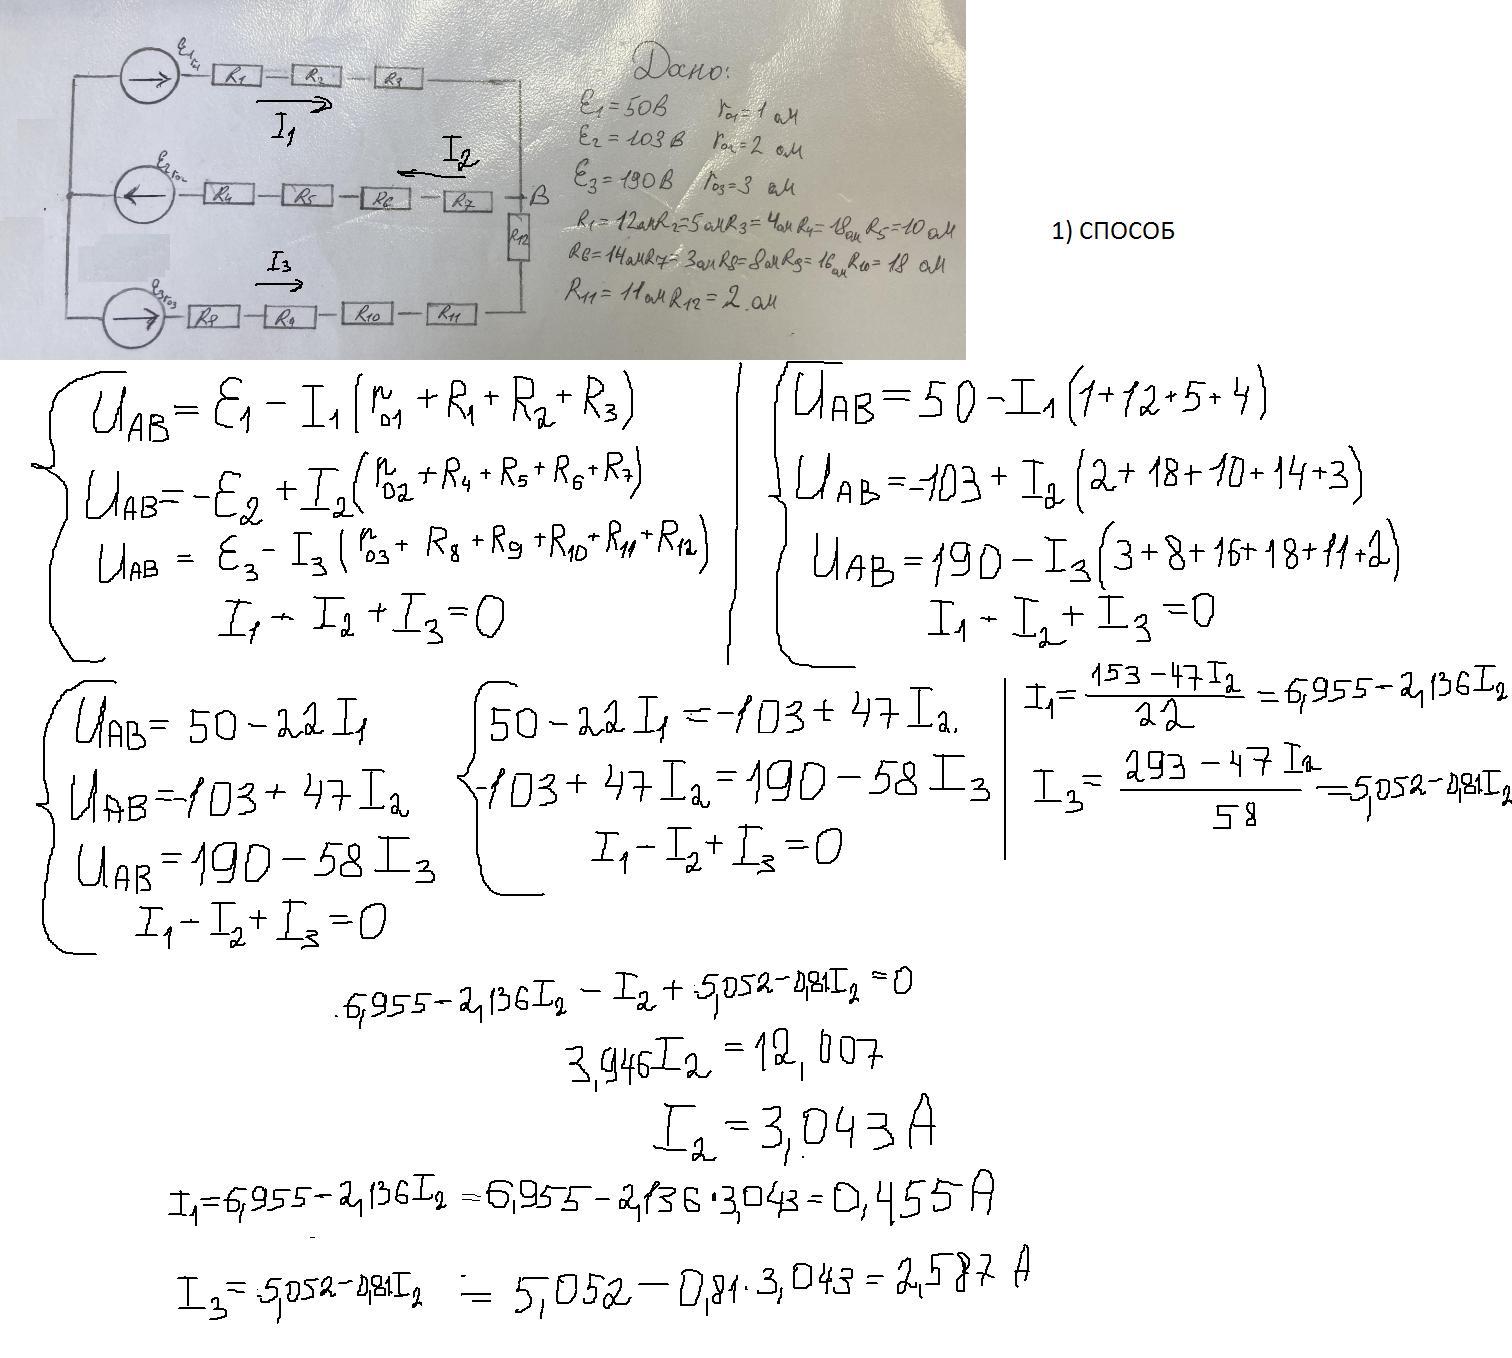 ε1r01 R1 R2 R3
I1
I2
ε2r02 R4 R5 R6 R7 B
R12
I3
ε3r03 R8 R9 R10 R11
Дано:
ε1=50В r01=1 ом
ε2=103 В r02=2 ом
ε3=190В r03=3 ом
R1=12омR2=5омR3=4омR4=18омR5=10 ом
R6=14омR7=3омR8=8омR9=16омR10=18 ом
R11=11омR12=2 ом
1) СПОСОБ
UAB = ε1 - I1 (r01 + R1 + R2 + R3)
UAB = -ε2 + I2 (r02 + R4 + R5 + R6 + R7)
UAB = ε3 - I3 (r03 + R8 + R9 + R10 + R11 + R12)
I1 - I2 + I3 = 0
UAB = 50 - I1 (1+12+5+4)
UAB = -103 + I2 (2+18+10+14+3)
UAB = 190 - I3 (3+8+16+18+11+2)
I1 - I2 + I3 = 0
UAB = 50 - 22I1
UAB = -103 + 47I2
UAB = 190 - 58I3
I1 - I2 + I3 = 0
50 - 22I1 = -103 + 47I2.
-103 + 47I2 = 190 - 58I3
I1 - I2 + I3 = 0
I1 = (153 - 47I2)/22 = 6,955 - 2,136I2
I3 = (293 - 47I2)/58 = 5,052 - 0,81I2
6,955 - 2,136I2 - I2 + 5,052 - 0,81I2 = 0
3,946I2 = 12,007
I2 = 3,043 A
I1 = 6,955 - 2,136I2 = 6,955 - 2,136·3,043 = 0,455 A
I3 = 5,052 - 0,81I2 = 5,052 - 0,81·3,043 = 2,587 A